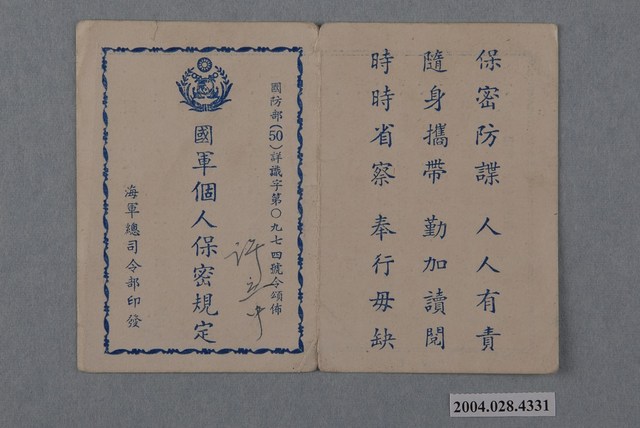 保密防諜 人人有責
隨身攜帶 勤加讀閱
時時省察 奉行毋缺
國防部(50)詳識字第〇九七四號令頒佈
國軍個人保密規定
海軍總司令部印發
2004.028.4331